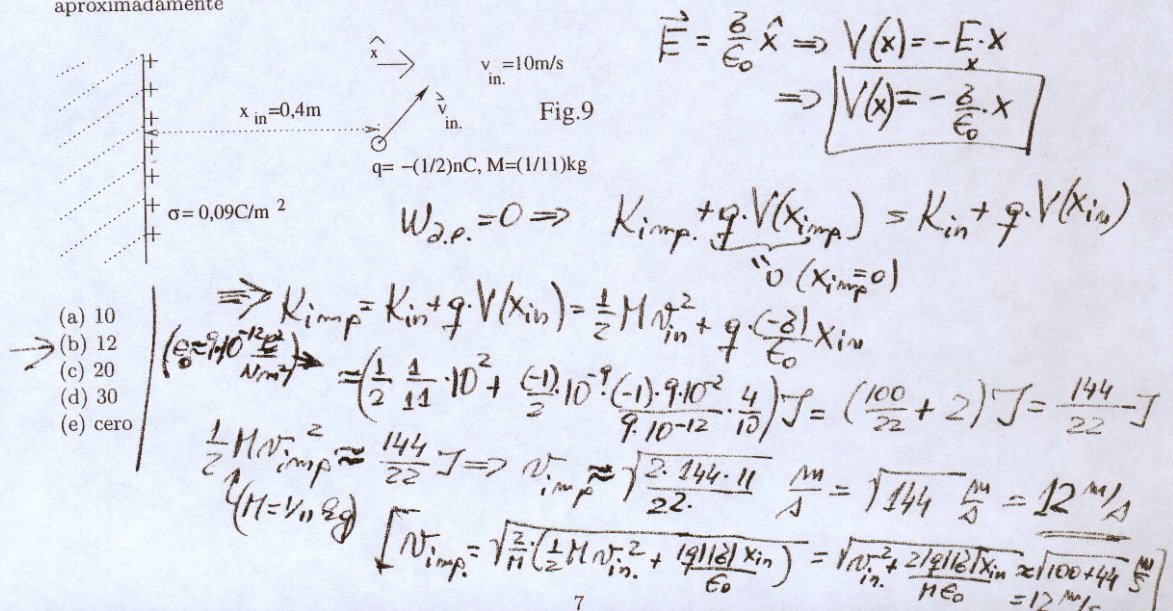 aproximadamente
x̂
v in. =10m/s
v⃗ in.
x in =0,4m
Fig.9
q= −(1/2)nC, M=(1/11)kg
σ= 0,09C/m²
E⃗ = σ/ε₀ x̂ ⇒ V(x) = −Eₓ·x
⇒ V(x) = −σ/ε₀·x
W = 0 ⇒ K imp. + q·V(x imp) = K in + q·V(x in)
"0 (x imp=0)
⇒ K imp = K in + q·V(x in) = 1/2 M v in² + q·(−σ)/ε₀ x in
(a) 10
→ (b) 12
(c) 20
(d) 30
(e) cero
(ε₀≈9·10⁻¹² C²/Nm²) → = (1/2 1/11·10² + (−1)/2·10⁻⁹·(−1)·9·10⁻²/9·10⁻¹²·4/10) J = (100/22 + 2) J = 144/22 J
1/2 M v imp² ≈ 144/22 J ⇒ v imp ≈ √(2·144·11/22.) m/s = √144 m/s = 12 m/s
(M=1/11 kg)
[v imp. = √(2/M·(1/2 M v in.² + |q||σ| x in/ε₀)) = √(v in.² + 2|q||σ|x in/Mε₀) ≈ √(100+44) m/s
= 12 m/s]
7